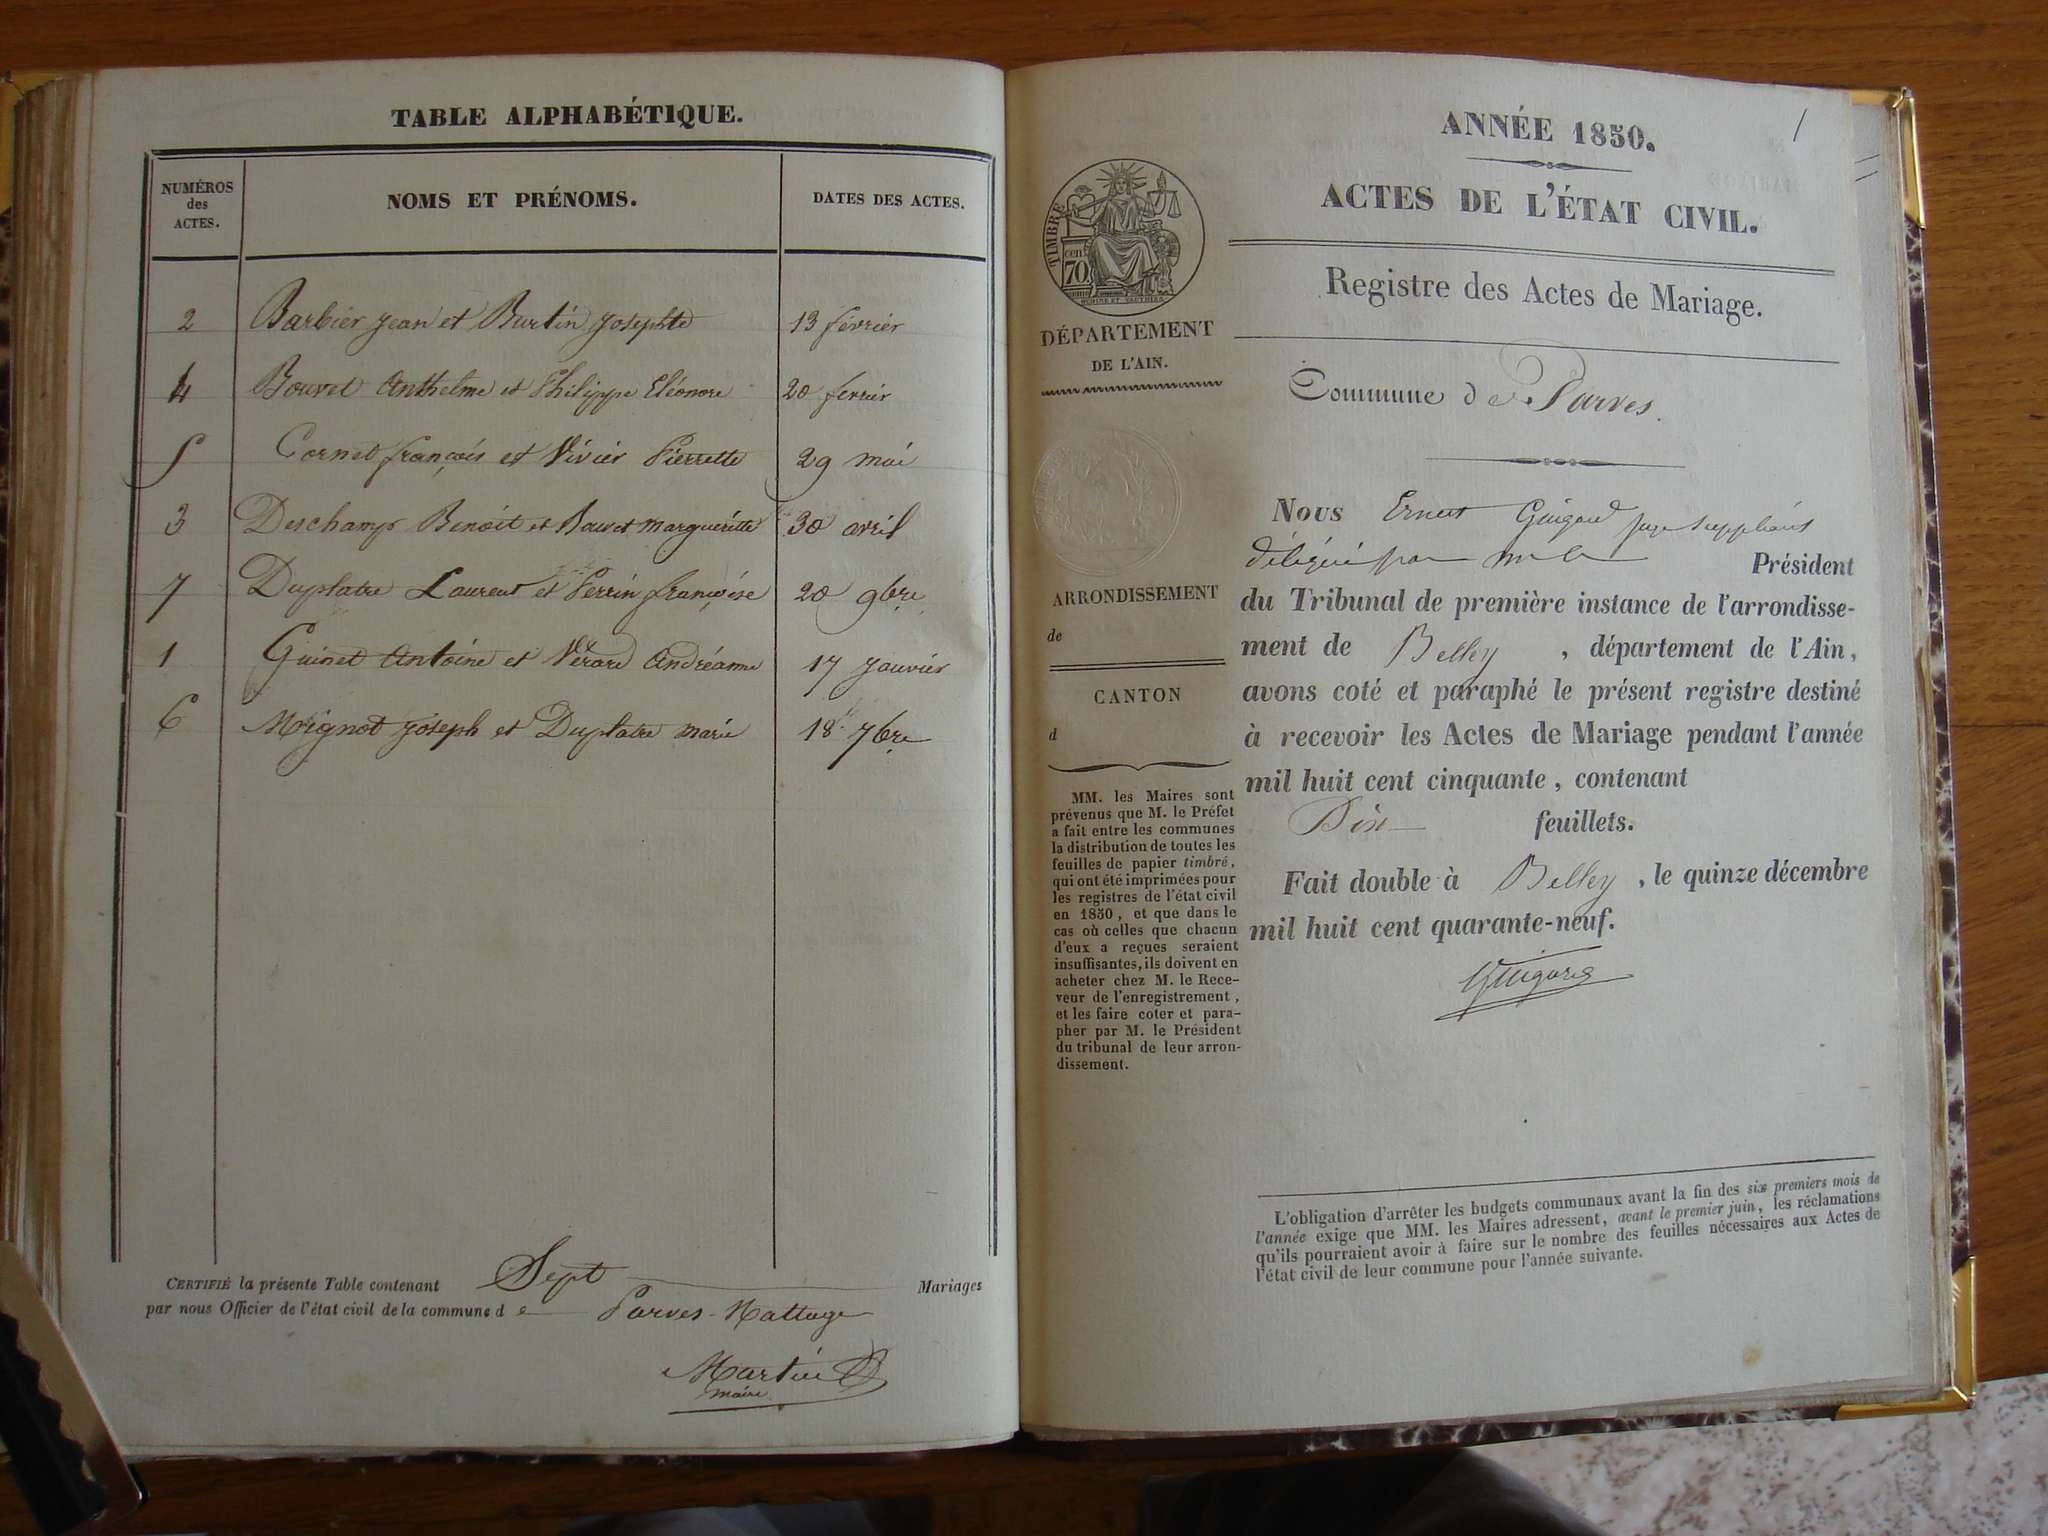 TABLE ALPHABÉTIQUE.
NUMÉROS des ACTES. NOMS ET PRÉNOMS. DATES DES ACTES.
2 Barbier Jean et Burtin Josephte 13 février
4 Bouvet Anthelme et Philippe Eléonore 20 fevrier
5 Cornet françois et Vivier Pierrette 29 mai
3 Deschamps Benoit et Bouvet Marguéritte 30 avril
7 Duplatre Laurent et Perrin françoise 20 9bre
1 Guinet Antoine et Vérard Andréanne 17 Janvier
6 Mignot Joseph et Duplatre Marie 18 7bre
CERTIFIÉ la présente Table contenant Sept Mariages
par nous Officier de l'état civil de la commune de Parves-Nattage
Martin
maire
1
ANNÉE 1850.
ACTES DE L'ÉTAT CIVIL.
Registre des Actes de Mariage.
TIMBRE
cen 70
DÉPARTEMENT
DE L'AIN.
Commune de Parves
ARRONDISSEMENT
de
CANTON
d
MM. les Maires sont
prévenus que M. le Préfet
a fait entre les communes
la distribution de toutes les
feuilles de papier timbré,
qui ont été imprimées pour
les registres de l'état civil
en 1850, et que dans le
cas où celles que chacun
d'eux a reçues seraient
insuffisantes, ils doivent en
acheter chez M. le Rece-
veur de l'enregistrement,
et les faire coter et para-
pher par M. le Président
du tribunal de leur arron-
dissement.
Nous Ernest Guigard juge suppléant
délégué par m le Président
du Tribunal de première instance de l'arrondisse-
ment de Belley, département de l'Ain,
avons coté et paraphé le présent registre destiné
à recevoir les Actes de Mariage pendant l'année
mil huit cent cinquante, contenant
Dix feuillets.
Fait double à Belley, le quinze décembre
mil huit cent quarante-neuf.
Guigard
L'obligation d'arrêter les budgets communaux avant la fin des six premiers mois de
l'année exige que MM. les Maires adressent, avant le premier juin, les réclamations
qu'ils pourraient avoir à faire sur le nombre des feuilles nécessaires aux Actes de
l'état civil de leur commune pour l'année suivante.